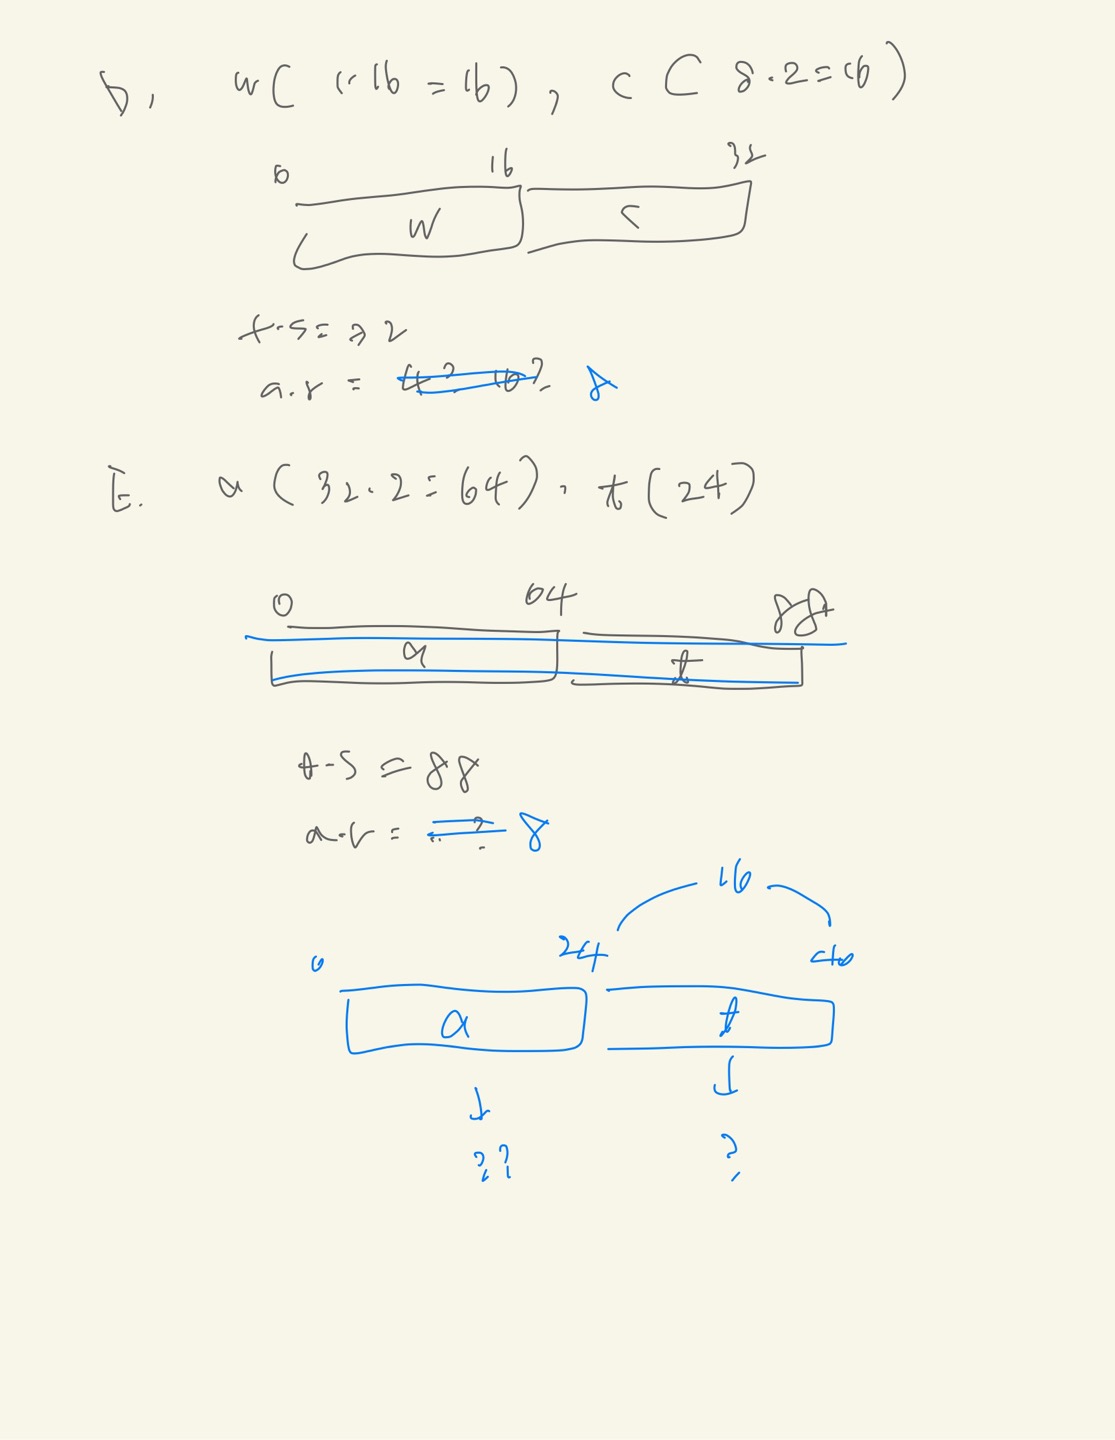 D. w( 1·16 = 16), c ( 8·2=16)
0 16 32
w c
t.s = 32
a.r = 4? 16? 8
E. a (32·2=64), t (24)
0 64 88
a t
t.s = 88
a.r = ? 8
16
0 24 40
a t
?? ?